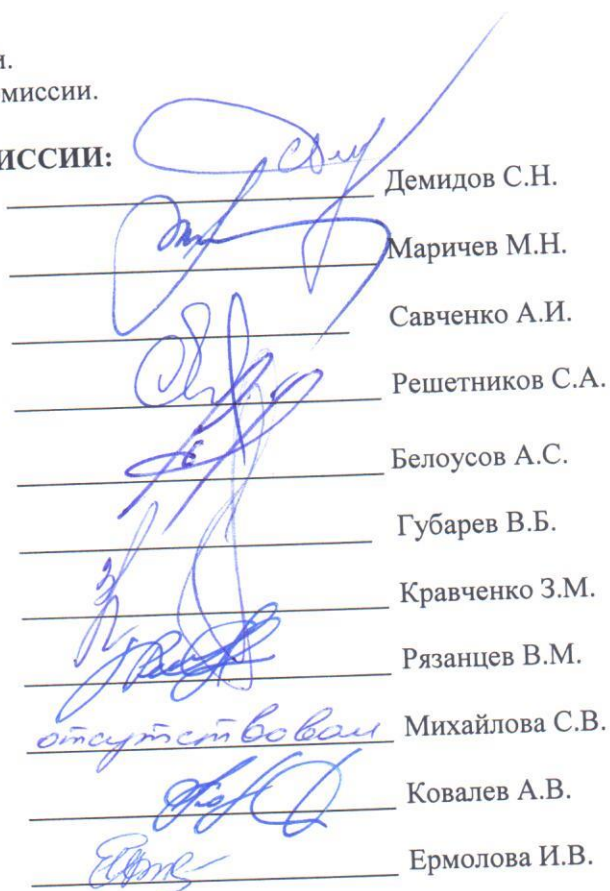 и.
миссии.
ИССИИ:
Демидов С.Н.
Маричев М.Н.
Савченко А.И.
Решетников С.А.
Белоусов А.С.
Губарев В.Б.
Кравченко З.М.
Рязанцев В.М.
отсутствовал Михайлова С.В.
Ковалев А.В.
Ермолова И.В.